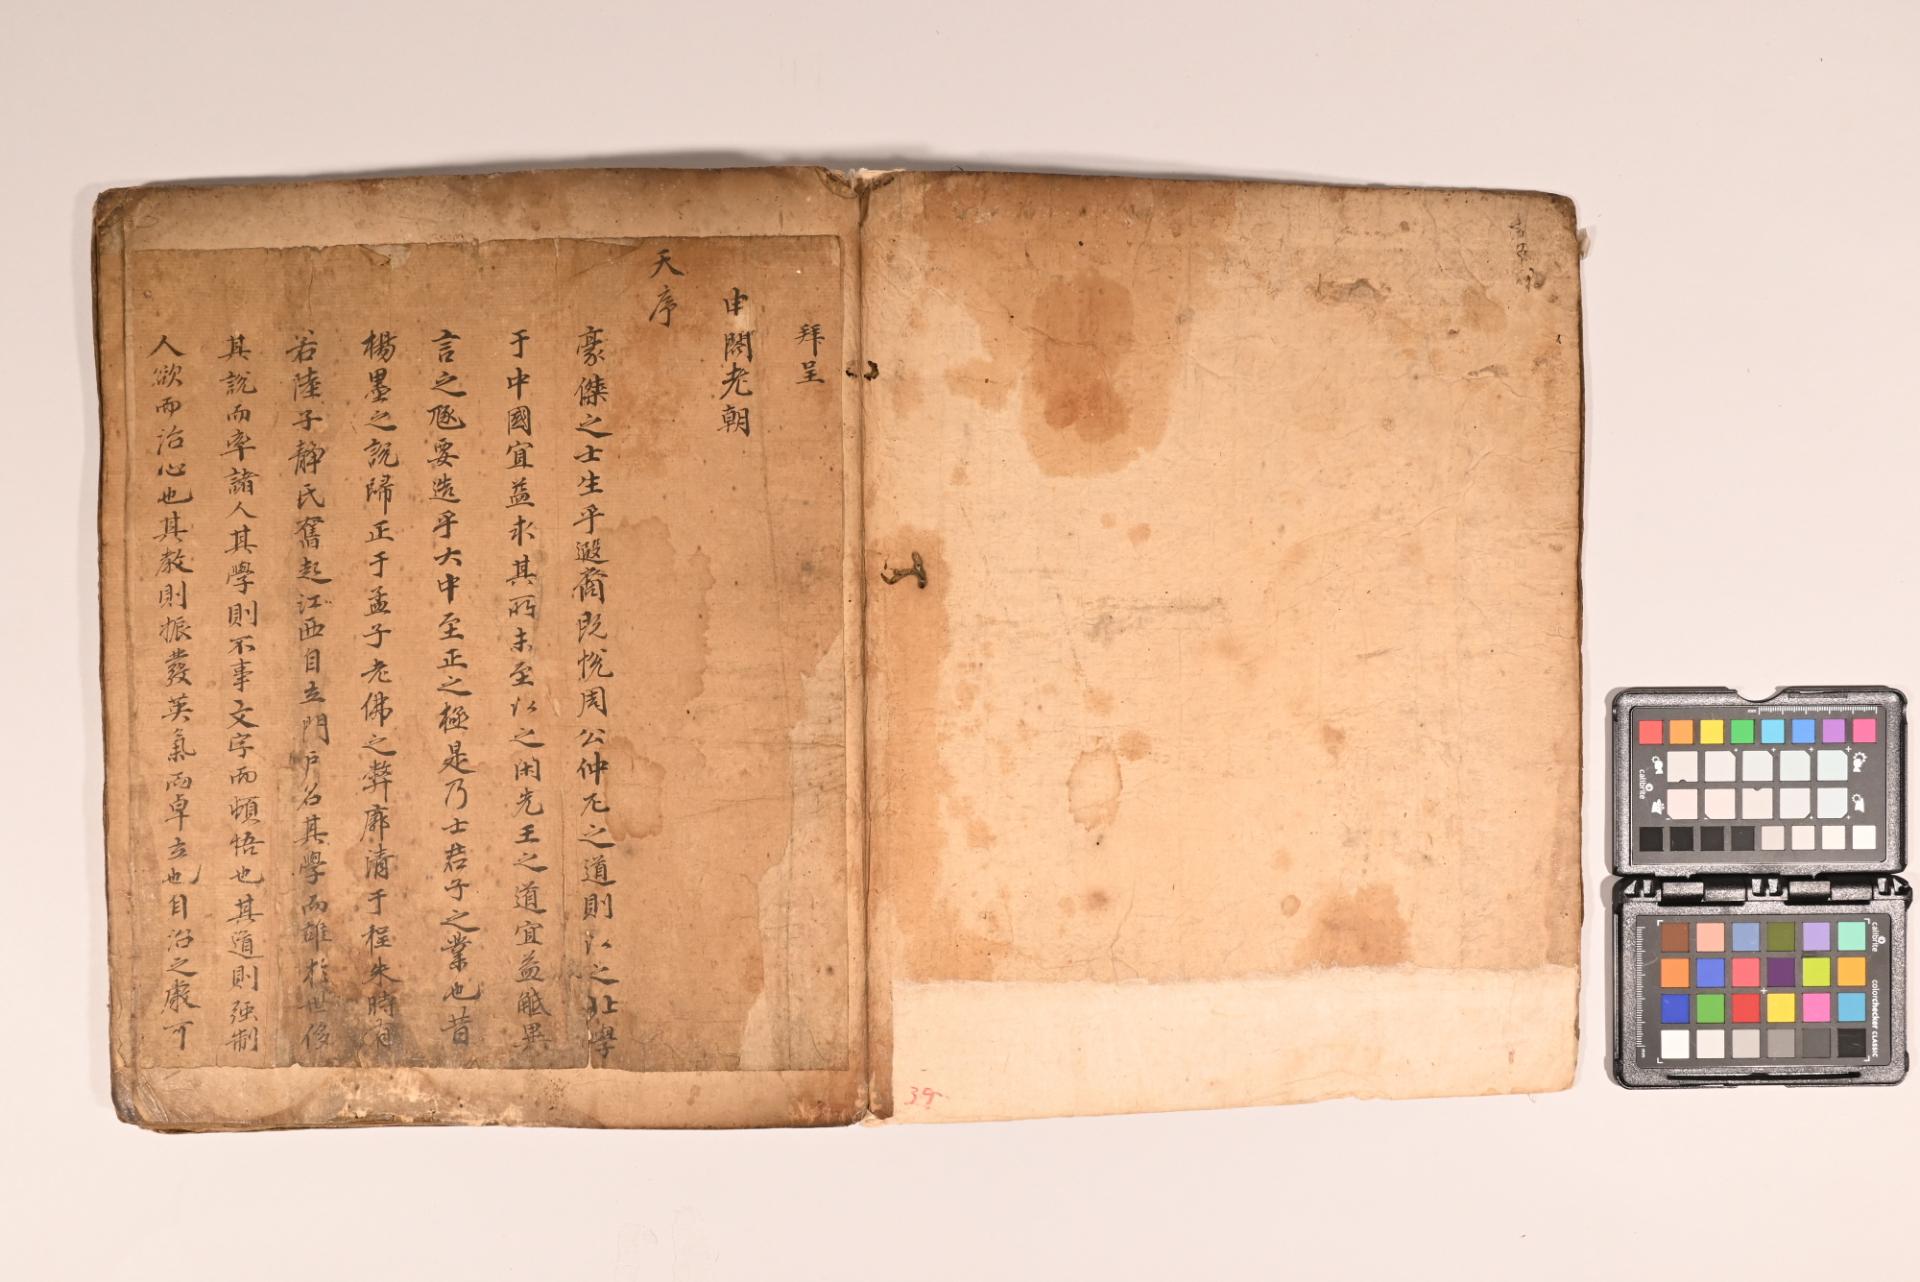 拜呈
申閣老朝
天序
豪傑之士生乎遐裔既悅周公仲尼之道則以之北學
于中國宜益求其所未至以之閑先王之道宜益觝異
言之 要造乎大中至正之極是乃士君子之業也昔
楊墨之說歸正于孟子老佛之弊廓清于程朱時有
若陸子靜氏奮起江西自立門戶名其學而雄於世侈
其說而率諸人其學則不事文字而頓悟也其道則强制
人欲而治心也其教則振發英氣而卓立也自治之嚴可
39
calibrite
colorchecker CLASSIC
calibrite